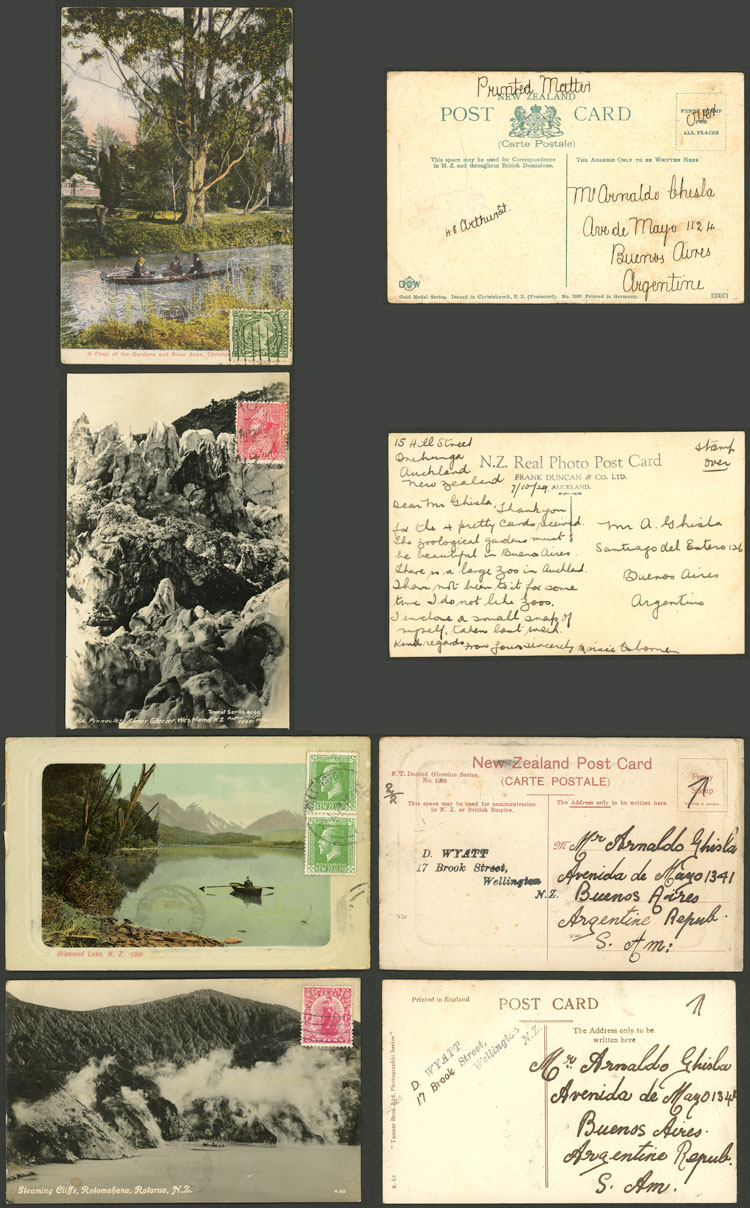 A Peep of the Gardens and River Avon,
Printed Matter
NEW ZEALAND
POST CARD
(Carte Postale)
Over
ALL PLACES
This space may be used for Correspondence
in N. Z. and throughout British Dominions.
THE ADDRESS ONLY TO BE WRITTEN HERE
48 Arthur St.
Mr Arnaldo Ghisla
Ave de Mayo 1124
Buenos Aires
Argentine
Gold Medal Series. Issued in Christchurch, N. Z. (Protected). Printed in Germany.
123071
Pinnacles Glacier Westland N.Z.
Tourist Series
15 Hill Street
Onehunga
Auckland
New Zealand
7/10/29
N.Z. Real Photo Post Card
FRANK DUNCAN & CO. LTD.
AUCKLAND.
Stamp
over
Dear Mr Ghisla, Thank you
for the 4 pretty cards received.
The zoological gardens must
be beautiful in Buenos Aires.
There is a large Zoo in Auckland.
I have not been to it for some
time I do not like Zoos.
I enclose a small snap of
myself, taken last week.
Kind regards from yours sincerely Maisie Osborne
Mr A. Ghisla
Santiago del Estero 126
Buenos Aires
Argentine
NEW ZEALAND
NEW ZEALAND
Diamond Lake, N. Z.
F. T. Daniel Glossine Series.
New Zealand Post Card
(CARTE POSTALE)
Penny
Stamp
This space may be used for communication
in N. Z. or British Empire.
The Address only to be written here.
D. WYATT
17 Brook Street,
Wellington
N.Z.
M Mr Arnaldo Ghisla
Avenida de Mayo 1341
Buenos Aires
Argentine Repub.
S. Am:
Steaming Cliffs, Rotomahana, Rotorua, N.Z.
Printed in England
POST CARD
The Address only to be
written here
D WYATT
17 Brook Street,
Wellington
N.Z.
Mr. Arnaldo Ghisla
Avenida de Mayo 1341
Buenos Aires.
Argentine Repub.
S. Am.